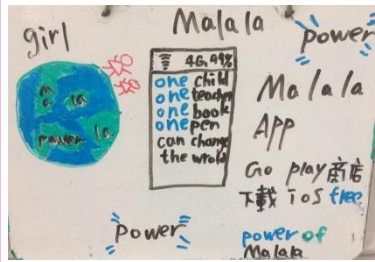 girl
Malala
power
4G 99%
one child
one teacher
one book
one pen
can change
the wrold
ma
la
power la
Malala
App
Go play商店
下載 iOS free
power
power of
Malala